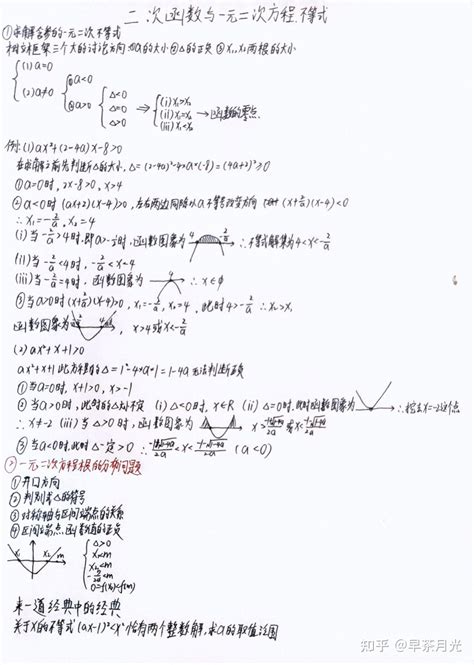 二次函数与一元二次方程.不等式
①求解含参的一元二次不等式
相应框架三个大的讨论方向:①a的大小②△的正负③x₁,x₂两根的大小
(1)a=0
(2)a≠0 { ①a<0 ②a>0 { △<0 △=0 △>0 ⇒ { (i)x₁>x₂ (ii)x₁=x₂ (iii)x₁<x₂ → 函数的零点.
例:(1)ax²+(2-4a)x-8>0
在求解之前先判断△的大小,△=(2-4a)²-4×a×(-8)=(4a+2)²≥0
①a=0时,2x-8>0,x>4
②a<0时(ax+2)(x-4)>0,左右两边同除以a,不等号改变方向 (x+2/a)(x-4)<0
∴x₁=-2/a,x₂=4
(i)当-2/a>4时,即a>-½时,函数图象为 4 -2/a ∴不等式解集为4<x<-2/a
(ii)当-2/a<4时,-2/a<x<4
(iii)当-2/a=4时,函数图象为 4 ∴x∈∅
③当a>0时(x+2/a)(x-4)>0,x₁=-2/a,x₂=4,此时4>-2/a ∴x₂>x₁
函数图象为 x>4或x<-2/a
(2)ax²+x+1>0
ax²+x+1此方程的△=1²-4×a×1=1-4a无法判断正负
①当a=0时,x+1>0,x>-1
②当a>0时,此时的△却不定 (i)△<0时,x∈R (ii)△=0时,此时函数图象为 ∴挖去x=-2这个点
∴x≠-2 (iii)当△>0时,函数图象为 x>(-1+√(1-4a))/2a或x<(-1-√(1-4a))/2a
③当a<0时,此时△一定>0 ∴(-1+√(1-4a))/2a<x<(-1-√(1-4a))/2a (a<0)
②一元二次方程根的分布问题
①开口方向
②判别式△的符号
③对称轴与区间端点的关系
④区间端点函数值的正负
x₁ x₂ m x { △>0 x₁<m x₂<m -b/2a<m 0=f(x₁)<f(m)
来一道经典中的经典
关于x的不等式(ax-1)²<x²恰有两个整数解,求a的取值范围
知乎 @早茶月光